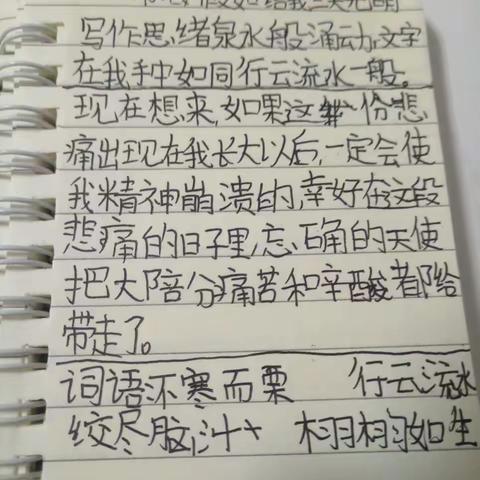 假如给我三天光明
写作思绪泉水般涌动,文字
在我手中如同行云流水一般。
现在想来,如果这份悲
痛出现在我长大以后,一定会使
我精神崩溃的,幸好在这段
悲痛的日子里,忘确的天使
把大陪分痛苦和辛酸都给
带走了。
词语不寒而栗 行云流水
绞尽脑汁 栩栩如生